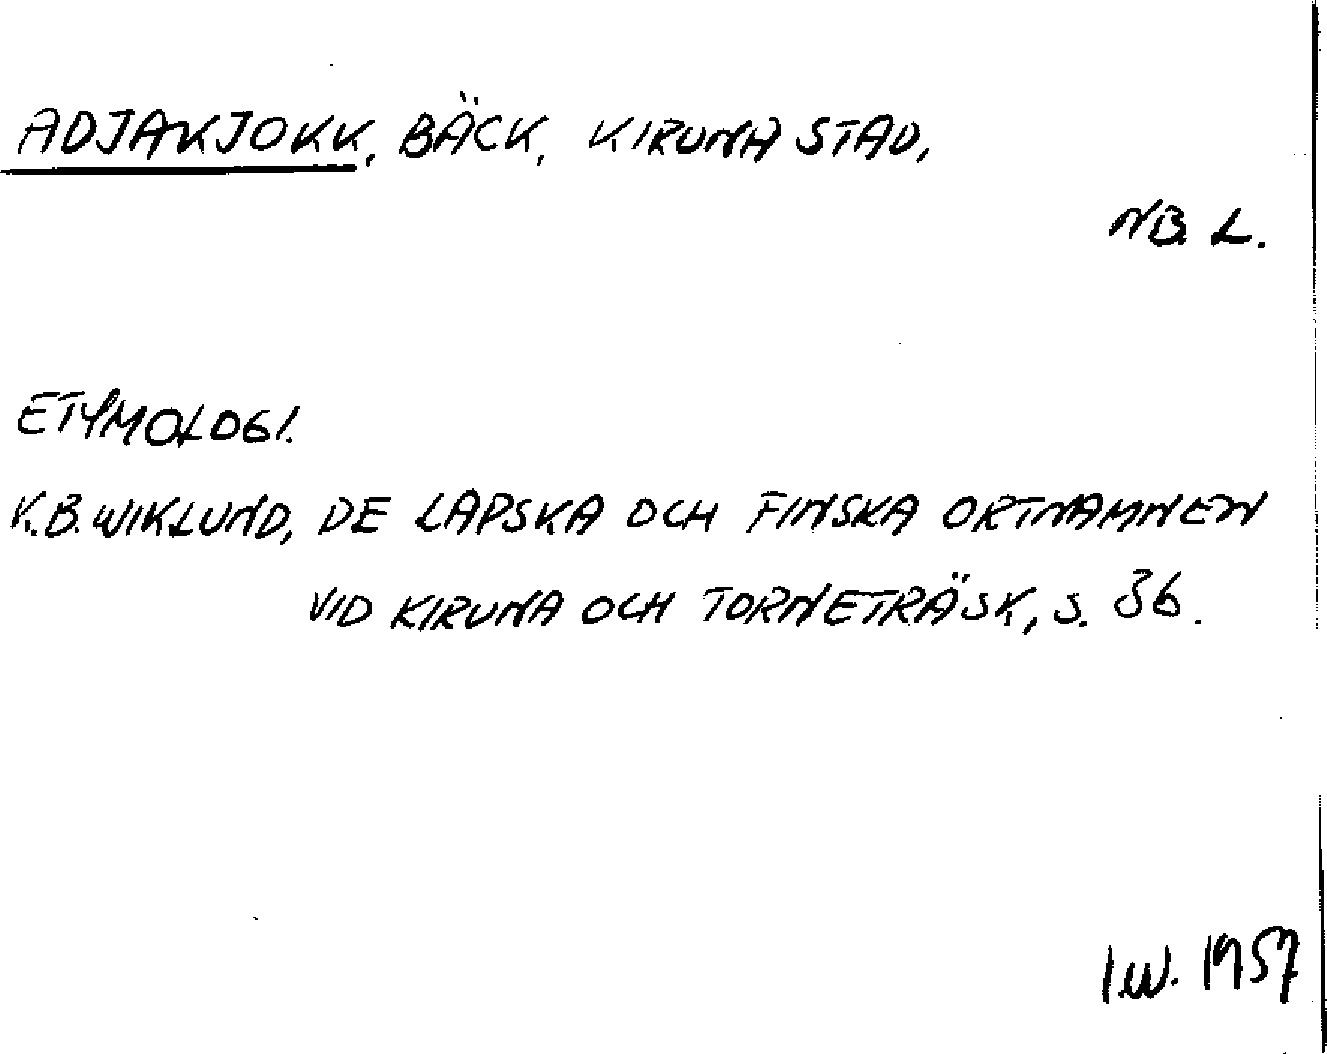 ADJAKJOKK, BÄCK, KIRUNA STAD,
NB. L.
ETYMOLOGI.
K.B. WIKLUND, DE LAPSKA OCH FINSKA ORTNAMNEN
VID KIRUNA OCH TORNETRÄSK, S. 36.
I.W. 1957